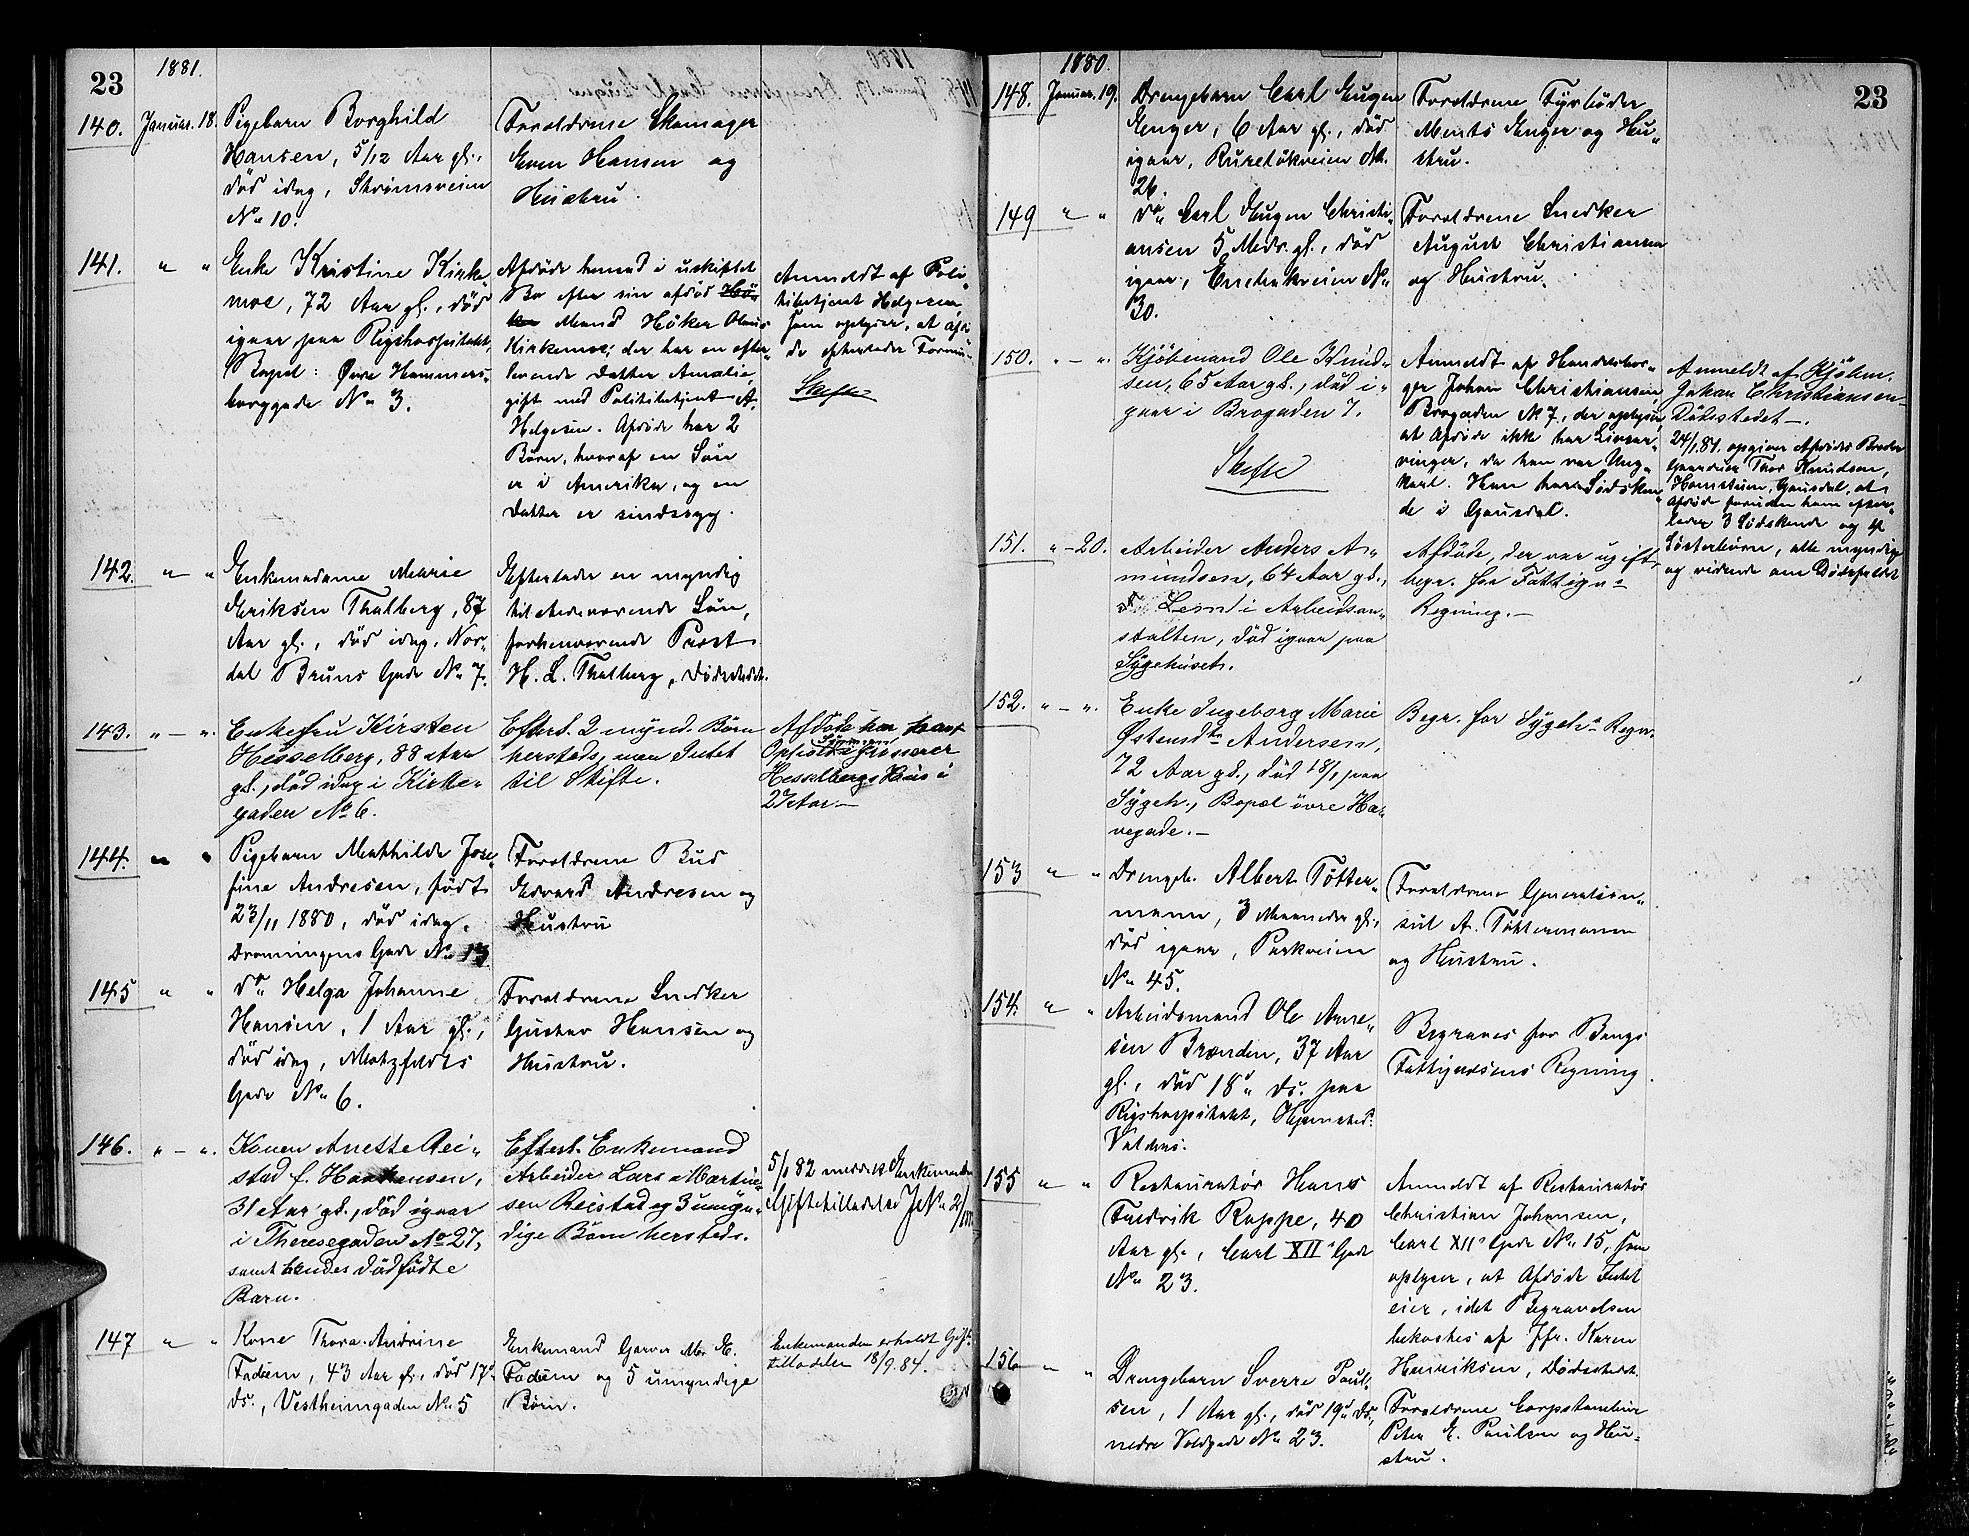 23
1881.
140. Januar. 18.
Pigebarn Borghild
Hansen, 5/12 Aar gl.,
død idag, Strømsveien
No 10.
Forældrene Skomager
Even Hansen og
Hustru.
141. " "
Enke Kristine Kirke-
moe, 72 Aar gl., død
igaar paa Rigshospitalet,
Bopæl: Øvre Hammers-
borggade No 3.
Afdøde hensad i uskiftet
Bo efter sin afdød Hö-
ker Mand Höker Olaus
Kirkemoe; der har en efter-
levende Datter Amalie,
gift med Politibetjent A.
Helgesen. Afdøde har 2
Børn, hvoraf en Søn
er i Amerika, og en
Datter er sindssyg.
Anmeldt af Poli-
tibetjent Helgesen,
som oplyser, at afdø-
de efterlader Formu-
Skifte
142. " "
Enkemadame Marie
Eriksen Thalberg, 87
Aar gl., død idag, Nor-
dal Bruns Gade No 7.
Efterlader en myndig
tilstedeværende Søn,
forhenværende Præst
H. L. Thalberg, Dødsstedet.
143. " - ".
Enkefru Kirsten
Hesselberg, 88 Aar
gl., død idag i Kirke-
gaden No 6.
Efterl. 2 mynd. Børn
hersteds, men Intet
til Skifte.
Afdøde har havt
Ophold i Grosserer
Hesselbergs Hus i
27 Aar.-
144. " "
Pigebarn Mathilde Jose-
fine Andresen, født
23/11 1880, død idag.
Dronningens Gade No 13
Forældrene Bud
Edvard Andresen og
Hustru
145 " "
do Helga Johanne
Hansen, 1 Aar gl.,
død idag, Motzfeldts
Gade No 6.
Forældrene Snedker
Gustav Hansen og
Hustru.
146. " - ".
Konen Anette Rei-
stad f. Haakensen,
31 Aar gl., død igaar
i Theresegaden No 27,
samt hendes dødfødte
Barn.
Efterl. Enkemand
Arbeider Lars Martin-
sen Reistad og 3 umyn-
dige Børn hersteds.
5/1 82 meddelt Enkemanden
Giftetilladelse J No 2/
147 " "
Kone Thora Andrine
Fadum, 43 Aar gl., død 17de
ds., Vestheimgaden No 5
Enkemand Garver M. E.
Fadum og 5 umyndige
Børn.
Enkemanden erholdt Gifte-
tilladelse 18/9 84.
23
1880.
148. Januar. 19.
Drengebarn Carl Eugen
Enger, 6 Aar gl., død
igaar, Ruseløkveien No
26.
Forældrene Fyrbøder
Ments Enger og Hu-
stru.
149 " "
do Carl Eugen Christi-
ansen 5 Mdr. gl., død
igaar, Enebakveien No
30.
Forældrene Snedker
August Christiansen
og Hustru.
150. " - ".
Kjøbmand Ole Knud-
sen, 65 Aar gl., død i-
gaar i Brogaden 7.
Skifte
Anmeldt af Handelsbor-
ger Johan Christiansen
Brogaden No 7, der oplyser
at Afdøde ikke har Livsar-
vinger, da han var Ung-
karl. Han har Södsken-
de i Gausdal.
Anmeldt af Kjøbm.
Johan Christiansen
Dødsstedet -.
24/1.81. opgiver Afdødes Broder
Gaardbr. Thor Knudsen,
Homstuen, Gausdal, at
Afdøde foruden ham efter-
lader 3 Södskende og 4
Søsterbørn, alle myndige
og vidende om Dødsfaldet
151. " - 20.
Arbeider Anders A-
mundsen, 64 Aar gl.,
Lem i Arbeidsan-
stalten, død igaar paa
Sygehuset.
Afdøde, der var ugift,
begr. for Fattigvs
Regning.-
152. " - ".
Enke Ingeborg Marie
Østensdtr Andersen,
72 Aar gl., død 18/1 paa
Sygeh., Bopæl övre Ha-
vegade.-
Begr. for Sygehs Regn.
153 " "
Drengeb. Albert Tötter-
mann, 3 Maaneder gl.,
død igaar, Parkveien
No 45.
Forældrene Generalkon-
sul A. Töttermann
og Hustru.
154. " "
Arbeidsmand Ole Arne-
sen Brænden, 37 Aar
gl., død 18de ds. paa
Rigshospitalet, Hjemsted:
Valders.
Begraves for Bangs
Fattigvæsens Regning.
155 " "
Restauratør Hans
Fredrik Roppe, 40
Aar gl., Carl XII's Gade
No 23.
Anmeldt af Restauratør
Christian Johansen,
Carl XII's Gade No 15, som
oplyser, at Afdøde Intet
eier, idet Begravelsen
bekostes af Jfr. Karen
Henriksen, Dødsstedet.
156 " "
Drengebarn Sverre Paul-
sen, 1 Aar gl., død 19de ds.,
nedre Voldgade No 23.
Forældrene Corpstambur
Peter E. Paulsen og Hu-
stru.